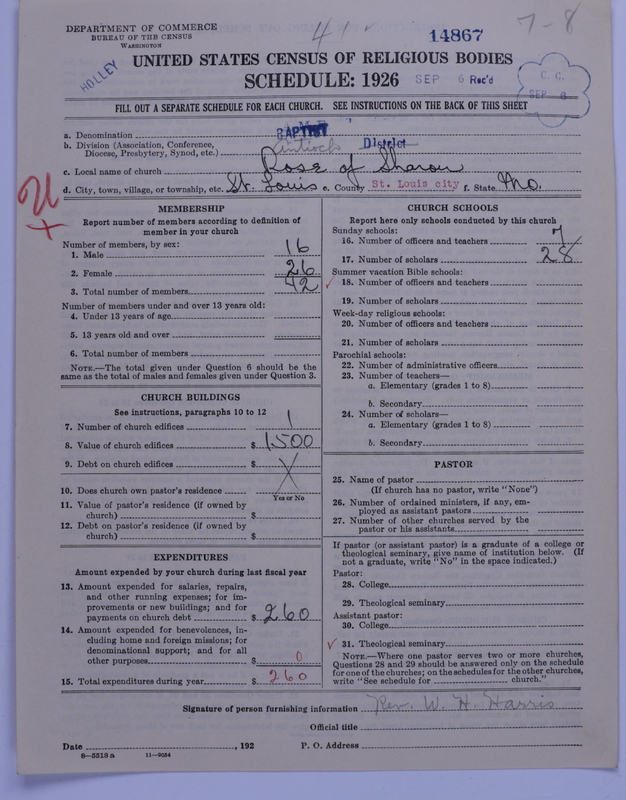 DEPARTMENT OF COMMERCE
BUREAU OF THE CENSUS
WASHINGTON
14867
7-8
HOLLEY
UNITED STATES CENSUS OF RELIGIOUS BODIES
SCHEDULE: 1926
SEP 6 Rec'd
C. C.
SEP 6
FILL OUT A SEPARATE SCHEDULE FOR EACH CHURCH. SEE INSTRUCTIONS ON THE BACK OF THIS SHEET
a. Denomination BAPTIST
b. Division (Association, Conference, Diocese, Presbytery, Synod, etc.) Antioch District
c. Local name of church Rose of Sharon
d. City, town, village, or township, etc. St. Louis e. County St. Louis city f. State Mo.
MEMBERSHIP
Report number of members according to definition of
member in your church
Number of members, by sex:
1. Male 16
2. Female 26
3. Total number of members 42
Number of members under and over 13 years old:
4. Under 13 years of age
5. 13 years old and over
6. Total number of members
NOTE.—The total given under Question 6 should be the
same as the total of males and females given under Question 3.
CHURCH BUILDINGS
See instructions, paragraphs 10 to 12
7. Number of church edifices 1
8. Value of church edifices $ 1500
9. Debt on church edifices $ X
10. Does church own pastor's residence
Yes or No
11. Value of pastor's residence (if owned by
church) $
12. Debt on pastor's residence (if owned by
church) $
EXPENDITURES
Amount expended by your church during last fiscal year
13. Amount expended for salaries, repairs,
and other running expenses; for im-
provements or new buildings; and for
payments on church debt $ 260
14. Amount expended for benevolences, in-
cluding home and foreign missions; for
denominational support; and for all
other purposes $ 0
15. Total expenditures during year $ 260
CHURCH SCHOOLS
Report here only schools conducted by this church
Sunday schools:
16. Number of officers and teachers 7
17. Number of scholars 28
Summer vacation Bible schools:
18. Number of officers and teachers
19. Number of scholars
Week-day religious schools:
20. Number of officers and teachers
21. Number of scholars
Parochial schools:
22. Number of administrative officers
23. Number of teachers—
a. Elementary (grades 1 to 8)
b. Secondary
24. Number of scholars—
a. Elementary (grades 1 to 8)
b. Secondary
PASTOR
25. Name of pastor
(If church has no pastor, write "None")
26. Number of ordained ministers, if any, em-
ployed as assistant pastors
27. Number of other churches served by the
pastor or his assistants
If pastor (or assistant pastor) is a graduate of a college or
theological seminary, give name of institution below. (If
not a graduate, write "No" in the space indicated.)
Pastor:
28. College
29. Theological seminary
Assistant pastor:
30. College
31. Theological seminary
NOTE.—Where one pastor serves two or more churches,
Questions 28 and 29 should be answered only on the schedule
for one of the churches; on the schedules for the other churches,
write "See schedule for church."
Signature of person furnishing information Rev. W. H. Harris
Official title
Date , 192 P. O. Address
8-5518 a 11-9054